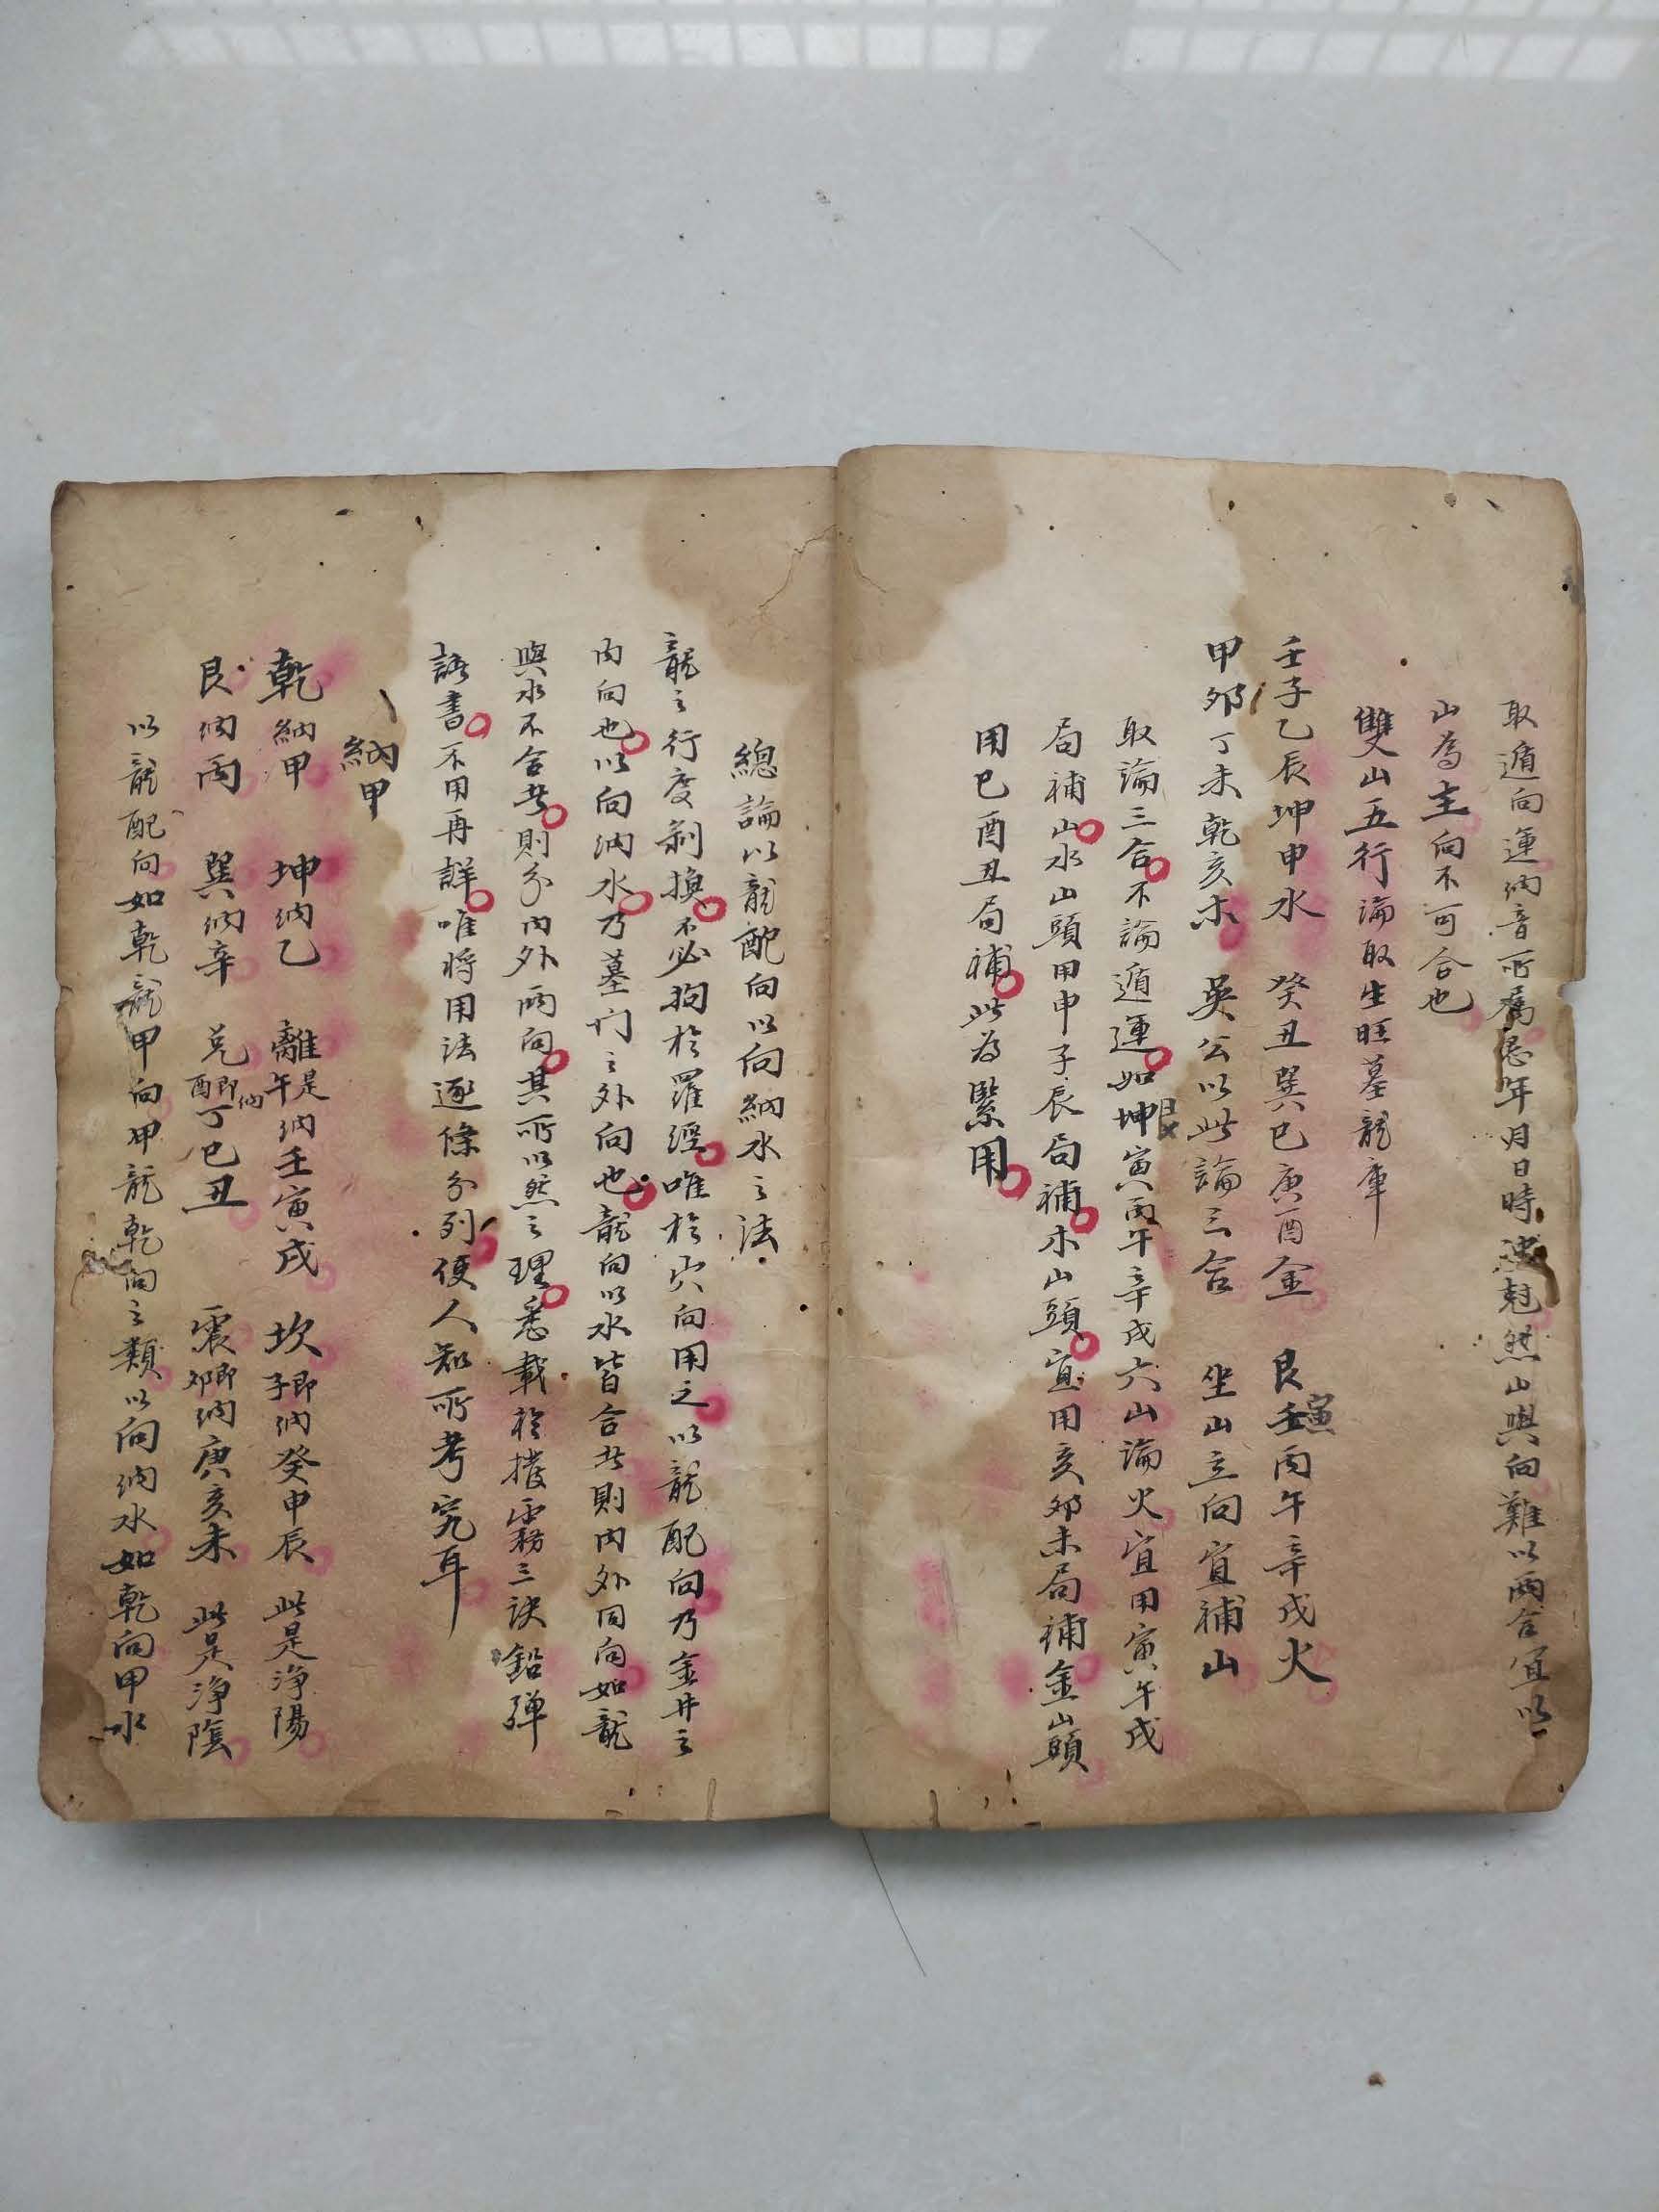 取遁向運納音所屬忌年月日時沖尅然山與向難以兩合宜以
山為主向不可合也
雙山五行論取生旺墓龍庫
壬子乙辰坤申水 癸丑巽巳庚酉金 艮寅丙午辛戌火
甲卯丁未乾亥木 吳公以此論三合 坐山立向宜補山
取論三合不論遁運如艮寅丙午辛戌六山論火宜用寅午戌
局補山水山頭用申子辰局補木山頭宜用亥卯未局補金山頭
用巳酉丑局補此為緊用
總論以龍配向以向納水之法
龍之行度剝換不必拘於羅經唯於穴向用之以龍配向乃金井之
內向也以向納水乃墓门之外向也龍向以水皆合者則內外同向如龍
與水不合者則分內外兩向其所以然之理悉載於撥霧三訣鉛彈
諸書不用再詳唯將用法逐條分列便人知所考究耳
納甲
乾納甲 坤納乙 離是午納壬寅戌 坎即子納癸申辰 此是净陽
艮納丙 巽納辛 兌即酉納丁巳丑 震即卯納庚亥未 此是净陰
以龍配向如乾龍甲向甲龍乾向之類以向納水如乾向甲水